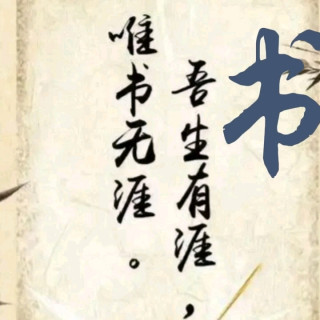 书
吾生有涯，
唯书无涯。